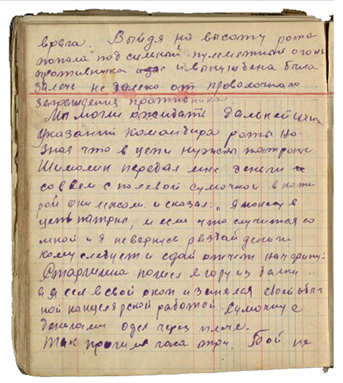 врага. Выйдя на высоту рота
попала под сильный пулеметный огонь
противника и вынуждена была
залечь не далеко от проволочного
заграждения противника.
Мы могли ожидать дальнейших
указаний командира роты но
зная что в цепи нужны патроны
Шимолин передал мне деньги
совсем с полевой сумочкой в кото-
рой они лежали и сказал: "Я понесу в
цепь патроны, и если что случится со
мной и я не вернусь раздай деньги
кому следует и сдай отчет начфину".
Старшина полез в гору из балки
а я сел в свой окоп и занялся своей обыч-
ной канцелярской работой. Сумочку с
деньгами одел через плечо.
Так прошли часа три. Бой не